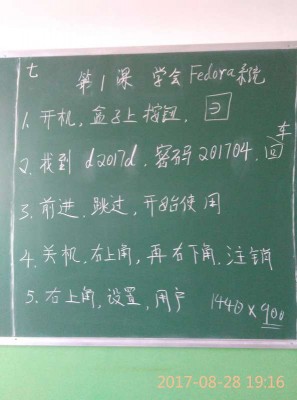 七
第1课 学会Fedora系统
1、开机,盒子上按钮,
2、找到 d2017d,密码 201704,回车
3、前进,跳过,开始使用
4、关机,右上角,再右下角,注销
5、右上角,设置,用户 1440×900
2017-08-28 19:16